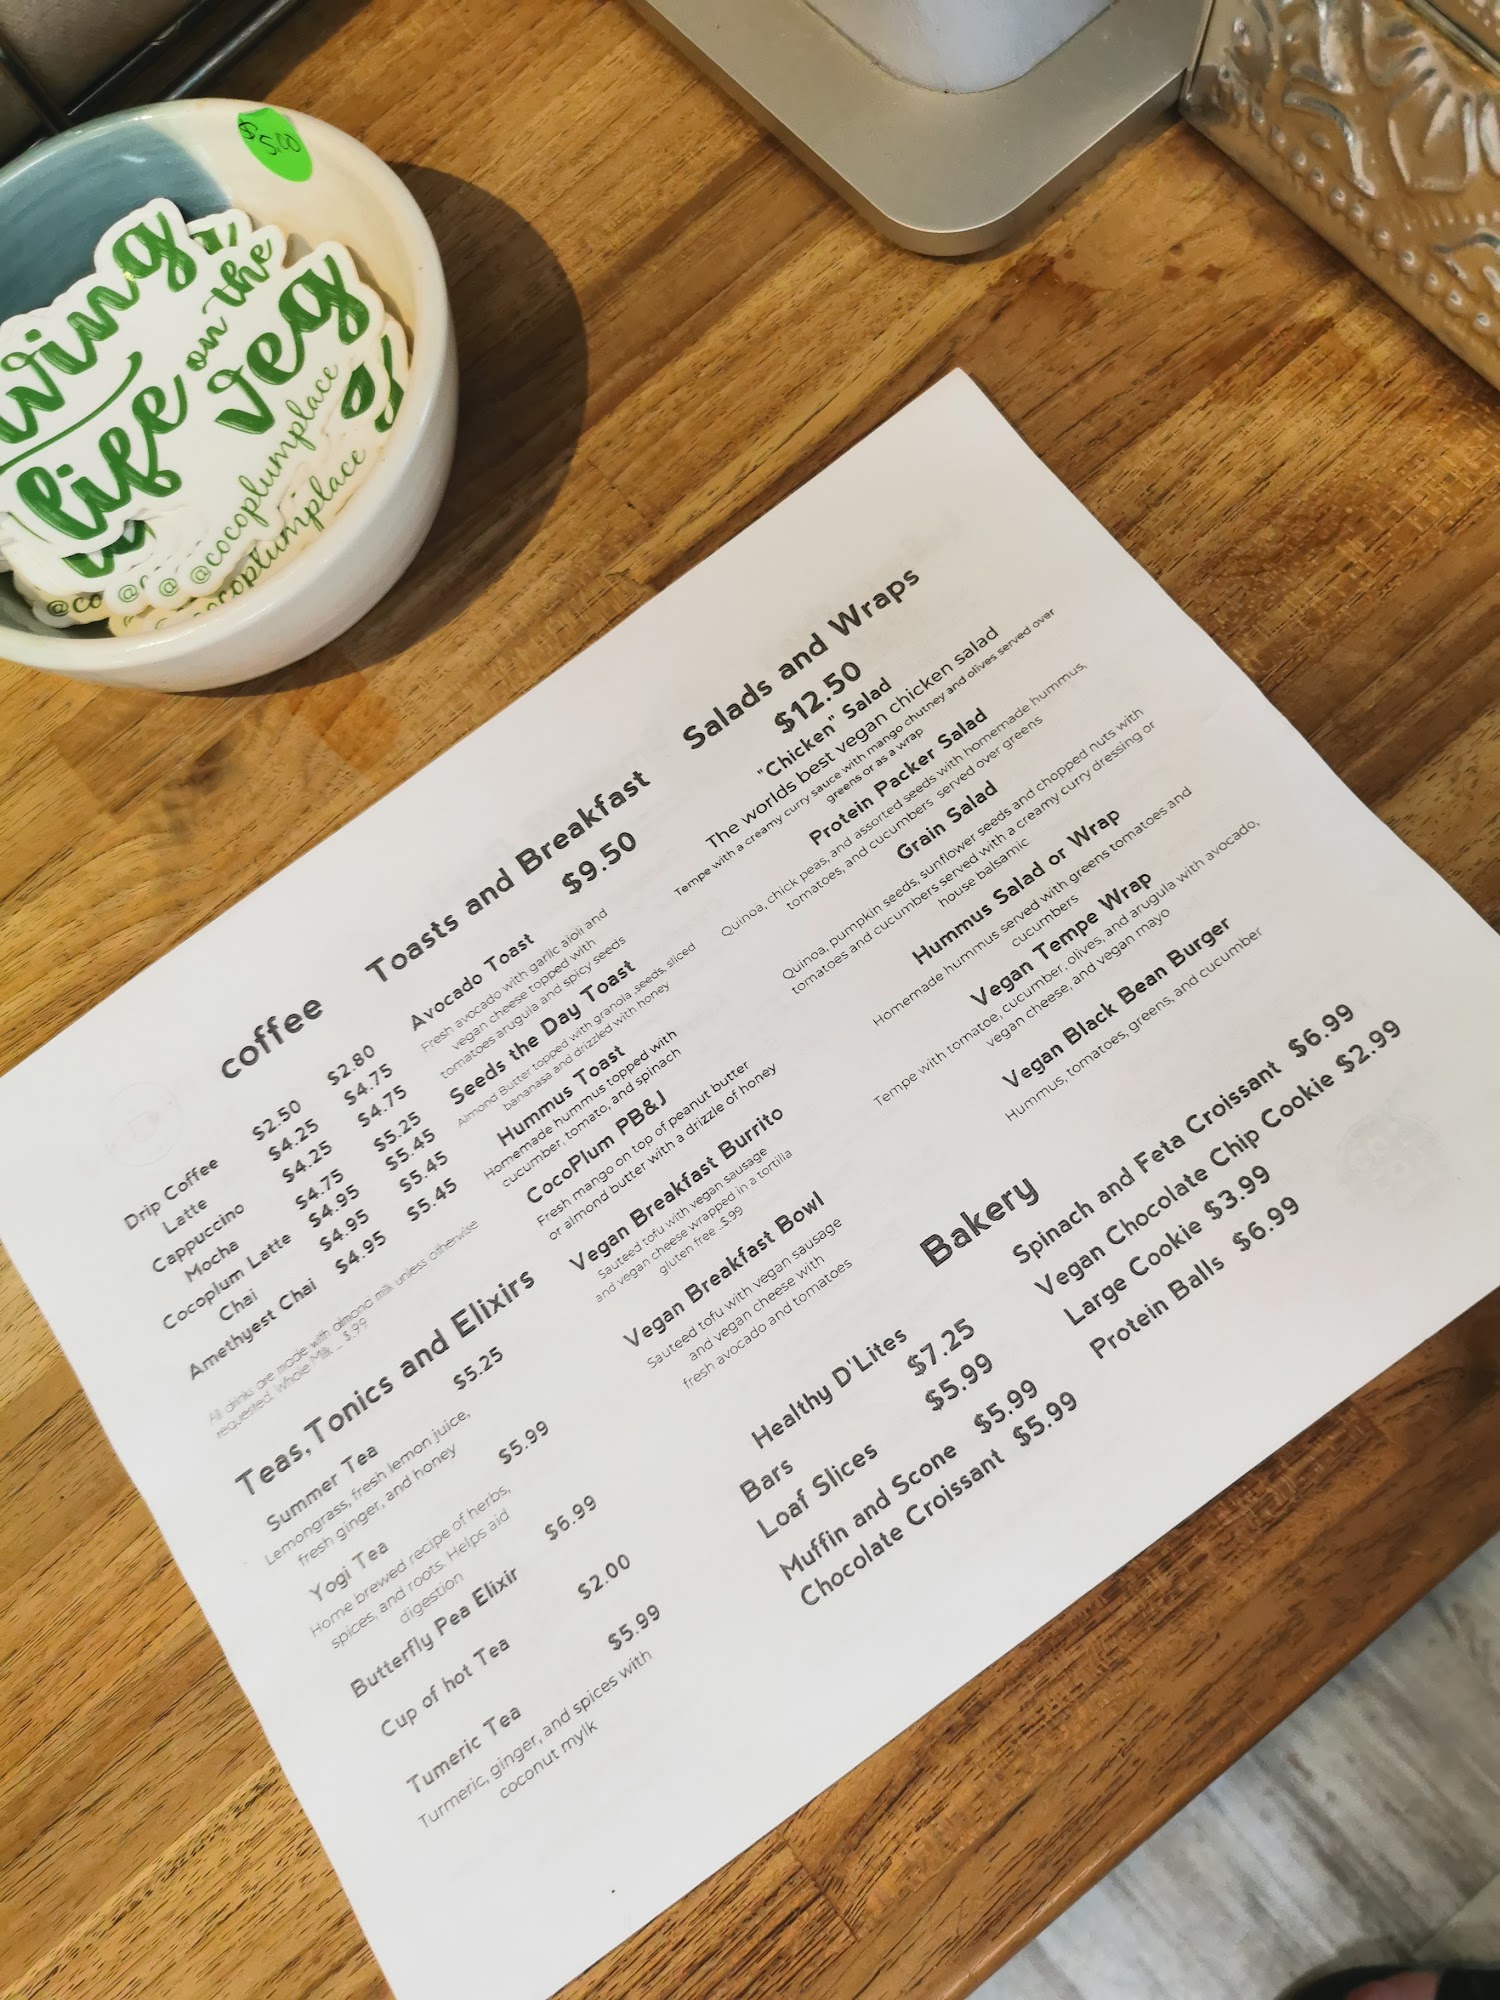 $5.00
living
life on the
veg
@cocoplumplace
cocoplumplace
@co
coffee
Drip Coffee $2.50 $2.80
Latte $4.25 $4.75
Cappuccino $4.25 $4.75
Mocha $4.75 $5.25
Cocoplum Latte $4.95 $5.45
Chai $4.95 $5.45
Amethyest Chai $4.95 $5.45
All drinks are made with almond milk unless otherwise
requested. Whole Milk _ $.99
Teas, Tonics and Elixirs
Summer Tea $5.25
Lemongrass, fresh lemon juice,
fresh ginger, and honey
Yogi Tea $5.99
Home brewed recipe of herbs,
spices, and roots. Helps aid
digestion
Butterfly Pea Elixir $6.99
Cup of hot Tea $2.00
Tumeric Tea $5.99
Turmeric, ginger, and spices with
coconut mylk
Toasts and Breakfast
$9.50
Avocado Toast
Fresh avocado with garlic aioli and
vegan cheese topped with
tomatoes arugula and spicy seeds
Seeds the Day Toast
Almond Butter topped with granola ,seeds, sliced
bananasa and drizzled with honey
Hummus Toast
Homemade hummus topped with
cucumber, tomato, and spinach
CocoPlum PB&J
Fresh mango on top of peanut butter
or almond butter with a drizzle of honey
Vegan Breakfast Burrito
Sauteed tofu with vegan sausage
and vegan cheese wrapped in a tortilla
gluten free _$.99
Vegan Breakfast Bowl
Sauteed tofu with vegan sausage
and vegan cheese with
fresh avocado and tomatoes
Salads and Wraps
$12.50
"Chicken" Salad
The worlds best vegan chicken salad
Tempe with a creamy curry sauce with mango chutney and olives served over
greens or as a wrap
Protein Packer Salad
Quinoa, chick peas, and assorted seeds with homemade hummus,
tomatoes, and cucumbers served over greens
Grain Salad
Quinoa, pumpkin seeds, sunflower seeds and chopped nuts with
tomatoes and cucumbers served with a creamy curry dressing or
house balsamic
Hummus Salad or Wrap
Homemade hummus served with greens tomatoes and
cucumbers
Vegan Tempe Wrap
Tempe with tomatoe, cucumber, olives, and arugula with avocado,
vegan cheese, and vegan mayo
Vegan Black Bean Burger
Hummus, tomatoes, greens, and cucumber
Bakery
Healthy D'Lites
Bars $7.25
Loaf Slices $5.99
Muffin and Scone $5.99
Chocolate Croissant $5.99
Spinach and Feta Croissant $6.99
Vegan Chocolate Chip Cookie $2.99
Large Cookie $3.99
Protein Balls $6.99